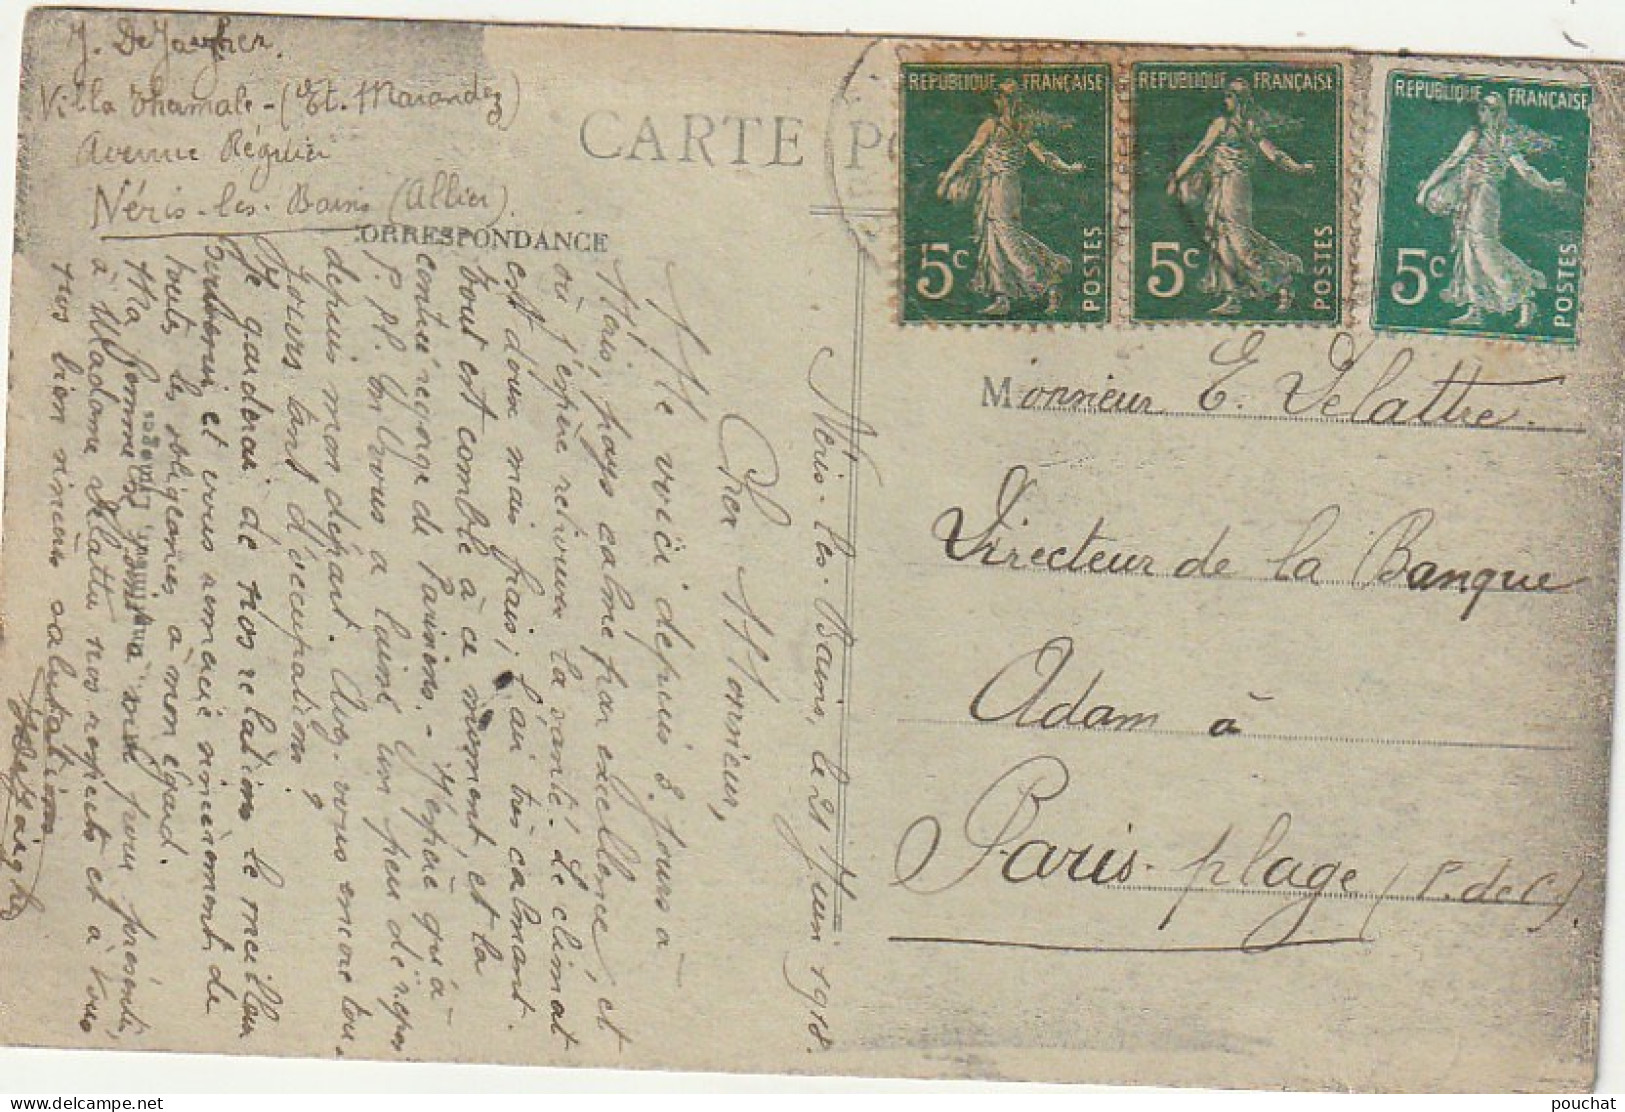 J. De Jaegher.
Villa Thamalé - (Et. Marandez)
Avenue Réguier
Néris-les-Bains (Allier).
CARTE PO
CORRESPONDANCE
REPUBLIQUE FRANÇAISE
5c POSTES
REPUBLIQUE FRANÇAISE
5c POSTES
REPUBLIQUE FRANÇAISE
5c POSTES
Néris-les-Bains, le 21 Juin 1918.
Cher Monsieur,
Me voici depuis 3 jours à
Néris, pays calme par excellence, et
où j'espère retrouver la santé. Le climat
est doux mais frais; l'air très calmant.
Tout est comble à ce moment, et la
contrée regorge de Parisiens. - J'espère qu'à
P. pl. on vous a laissé un peu de repos
depuis mon départ. Avez-vous encore tou-
jours tant d'occupations ?
Je garderai de nos relations le meilleur
souvenir et vous remercie sincèrement de
toutes les obligeances à mon égard.
Ma femme se joint à moi pour présenter,
à Madame Delattre nos respects et à vous
nos bien sincères salutations
Monsieur E. Delattre.
Directeur de la Banque
Adam à
Paris-plage (P. de C.)
pouchat